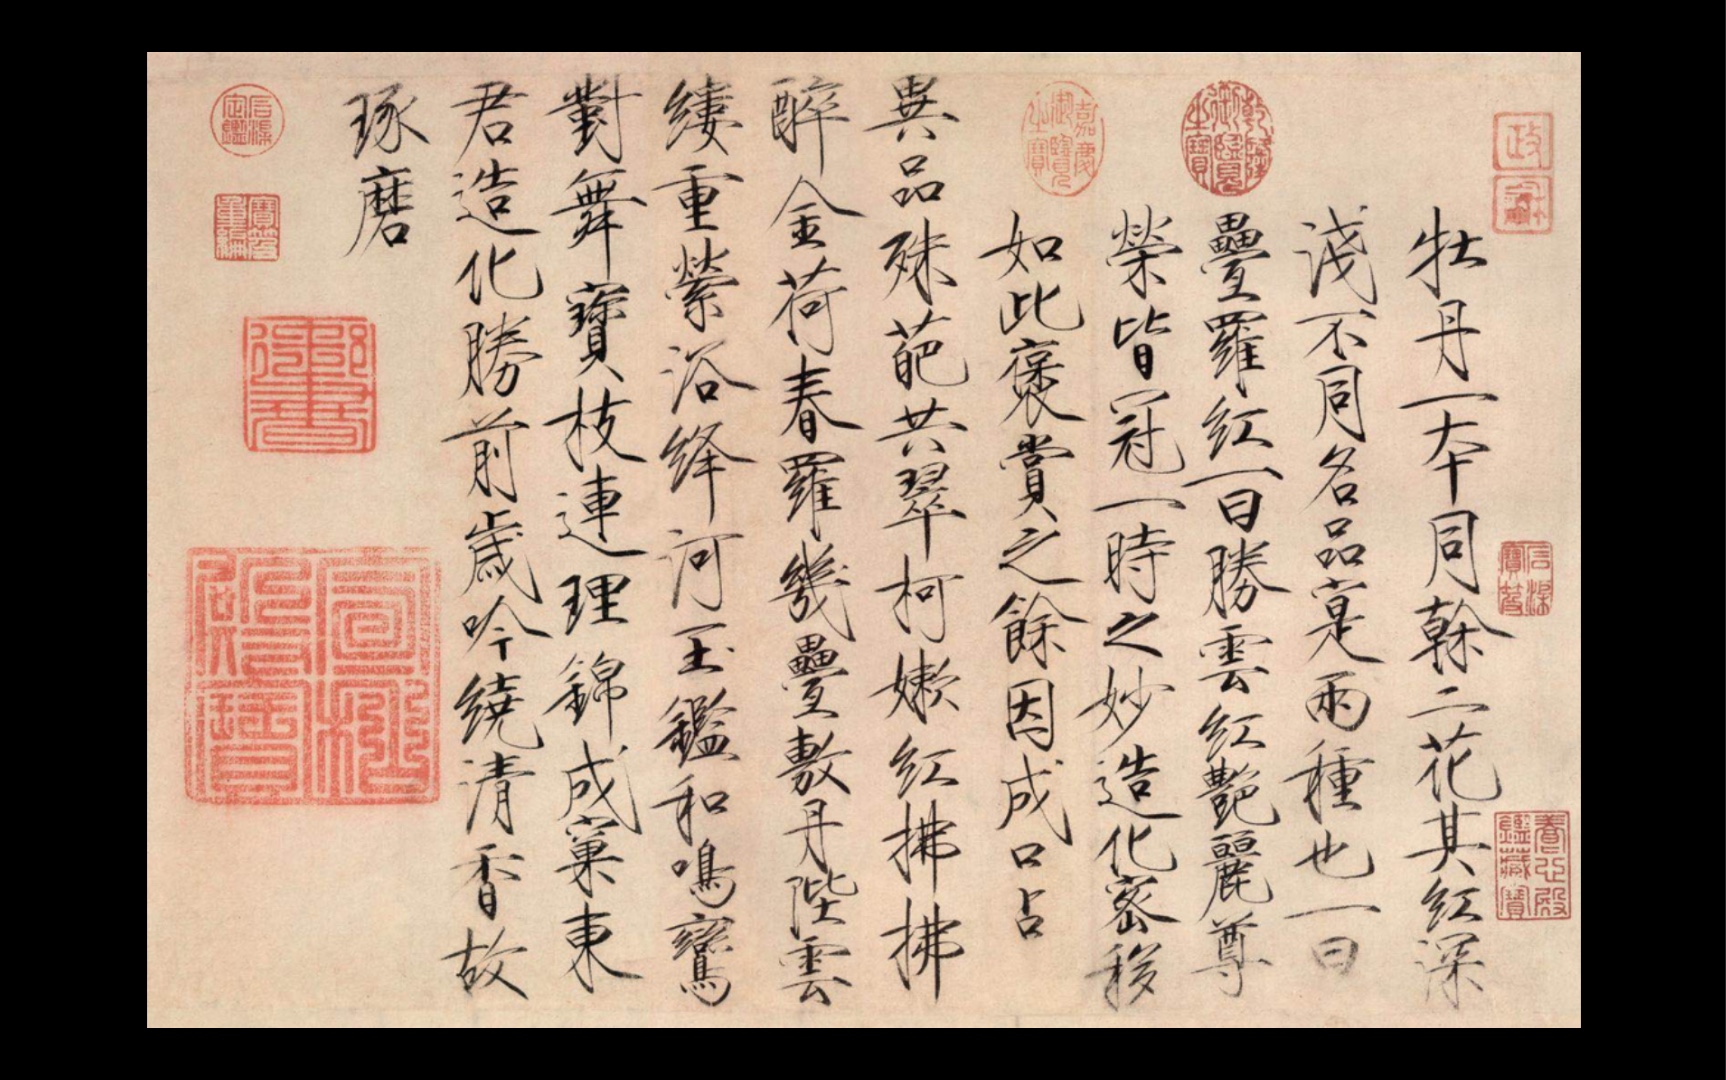 政龢
石渠寶笈
養心殿鑑藏寶
牡丹一本同榦二花其紅深
淺不同名品寔兩種也一曰
乾隆御覽之寶
疊羅紅一曰勝雲紅艷麗尊
榮皆冠一時之妙造化密移
嘉慶御覽之寶
如此褒賞之餘因成口占
異品殊葩共翠柯嫩紅拂拂
醉金荷春羅幾疊敷丹陛雲
縷重縈浴絳河玉鑑和鳴鸞
對舞寶枝連理錦成窠東
君造化勝前歲吟繞清香故
琢磨
石渠定鑑
寶笈重編
御書